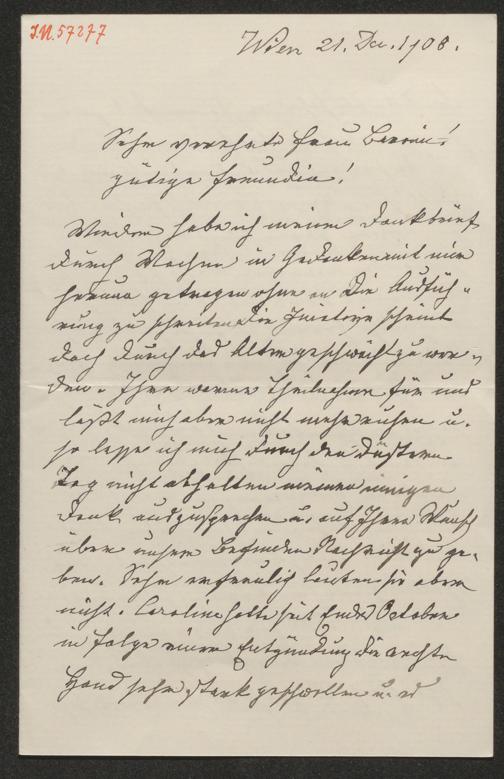 I.N. 57277
Wien 21. Dec. 1908.
Sehr verehrte Frau Baronin!
gütige Freundin!
Wieder habe ich meinen Dankbrief
durch Wochen in Gedanken mit mir
herum getragen ohne an die Ausfüh-
rung zu schreiten. Die scheint
doch durch das Alter geschwächt zu wer-
den. Ihre warme Theilnahme für uns
läßt mich aber nicht mehr ruhen u.
so lasse ich mich durch den düstern
Tag nicht abhalten meinen innigen
Dank auszusprechen u. auf Ihren Wunsch
über unser Befinden Nachricht zu ge-
ben. Sehr erfreulich lauten sie aber
nicht. Caroline hatte seit Ende October
in Folge einer Entzündung die rechte
Hand sehr stark geschwollen u. es